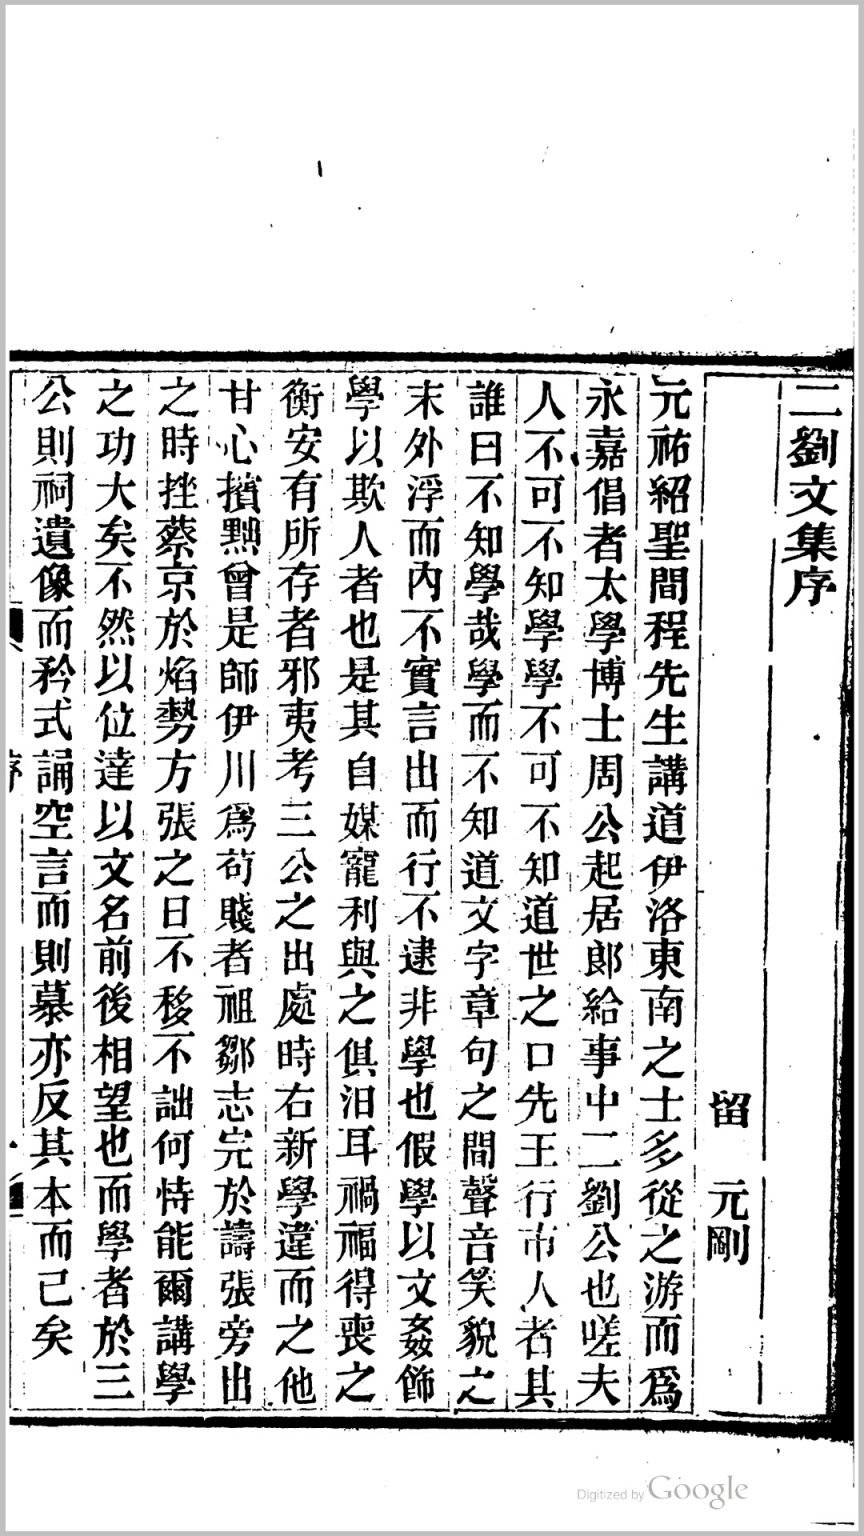 二劉文集序
留 元剛
元祐紹聖間程先生講道伊洛東南之士多從之游而爲
永嘉倡者太學博士周公起居郎給事中二劉公也嗟夫
人不可不知學學不可不知道世之口先王行市人者其
誰曰不知學哉學而不知道文字章句之間聲音笑貌之
末外浮而內不實言出而行不逮非學也假學以文姦飾
學以欺人者也是其自媒寵利與之俱汨耳禍福得喪之
衡安有所存者邪夷考三公之出處時右新學違而之他
甘心擯黜曾是師伊川爲苟賤者祖鄒志完於譸張旁出
之時挫蔡京於焰勢方張之日不移不詘何恃能爾講學
之功大矣不然以位達以文名前後相望也而學者於三
公則祠遺像而矜式誦空言而則慕亦反其本而已矣
序
一
Digitized by Google